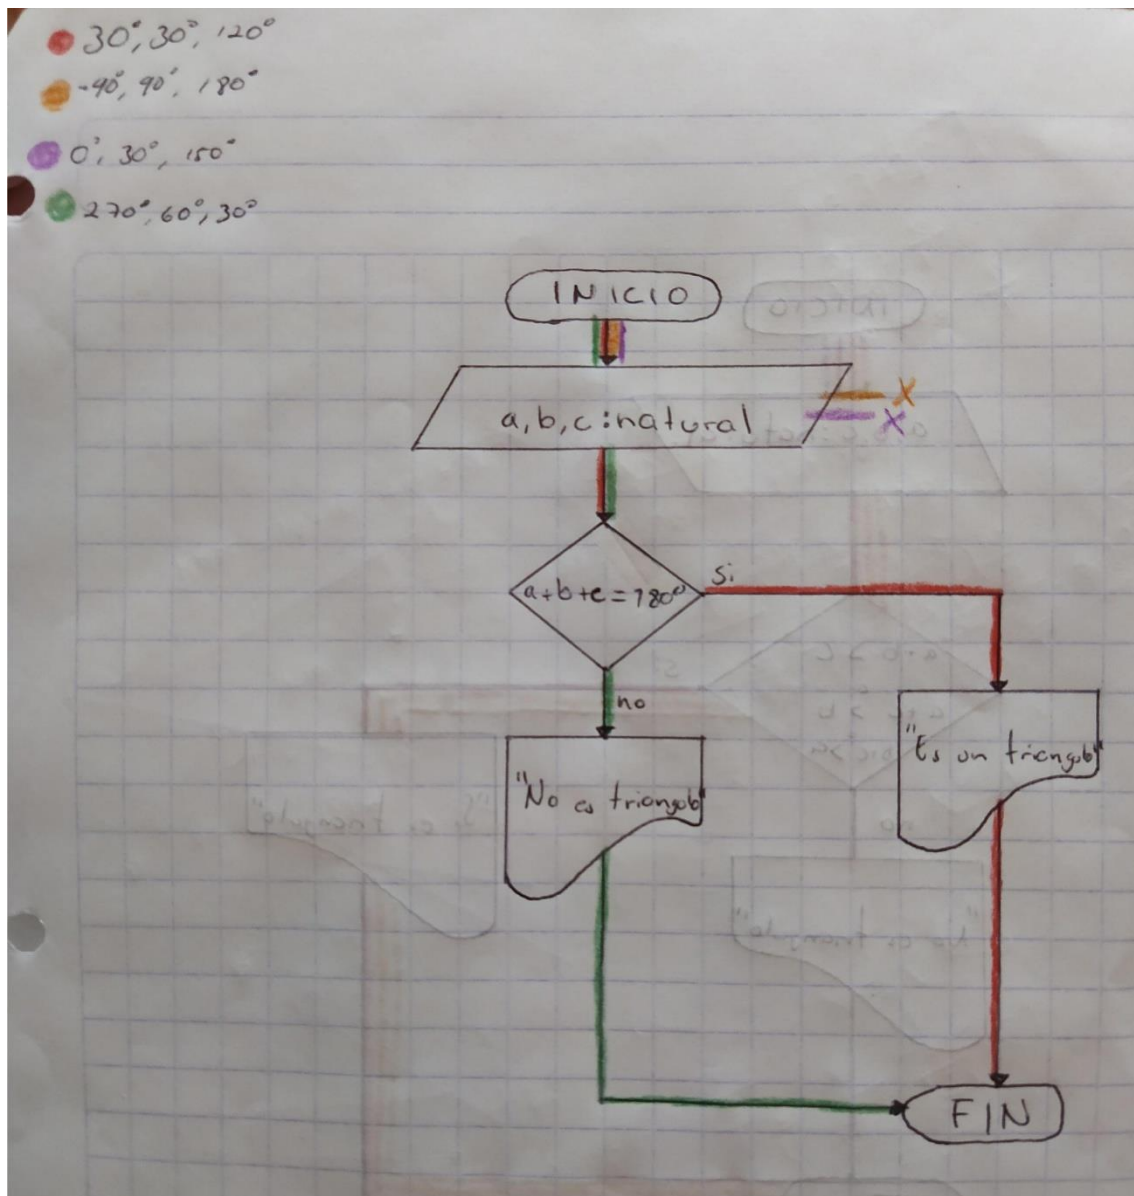 30°, 30°, 120°
-90°, 90°, 180°
0°, 30°, 150°
270°, 60°, 30°
INICIO
a, b, c : natural
x
x
a+b+c=180°
Si
no
"Es un triangulo"
"No es triangulo"
FIN